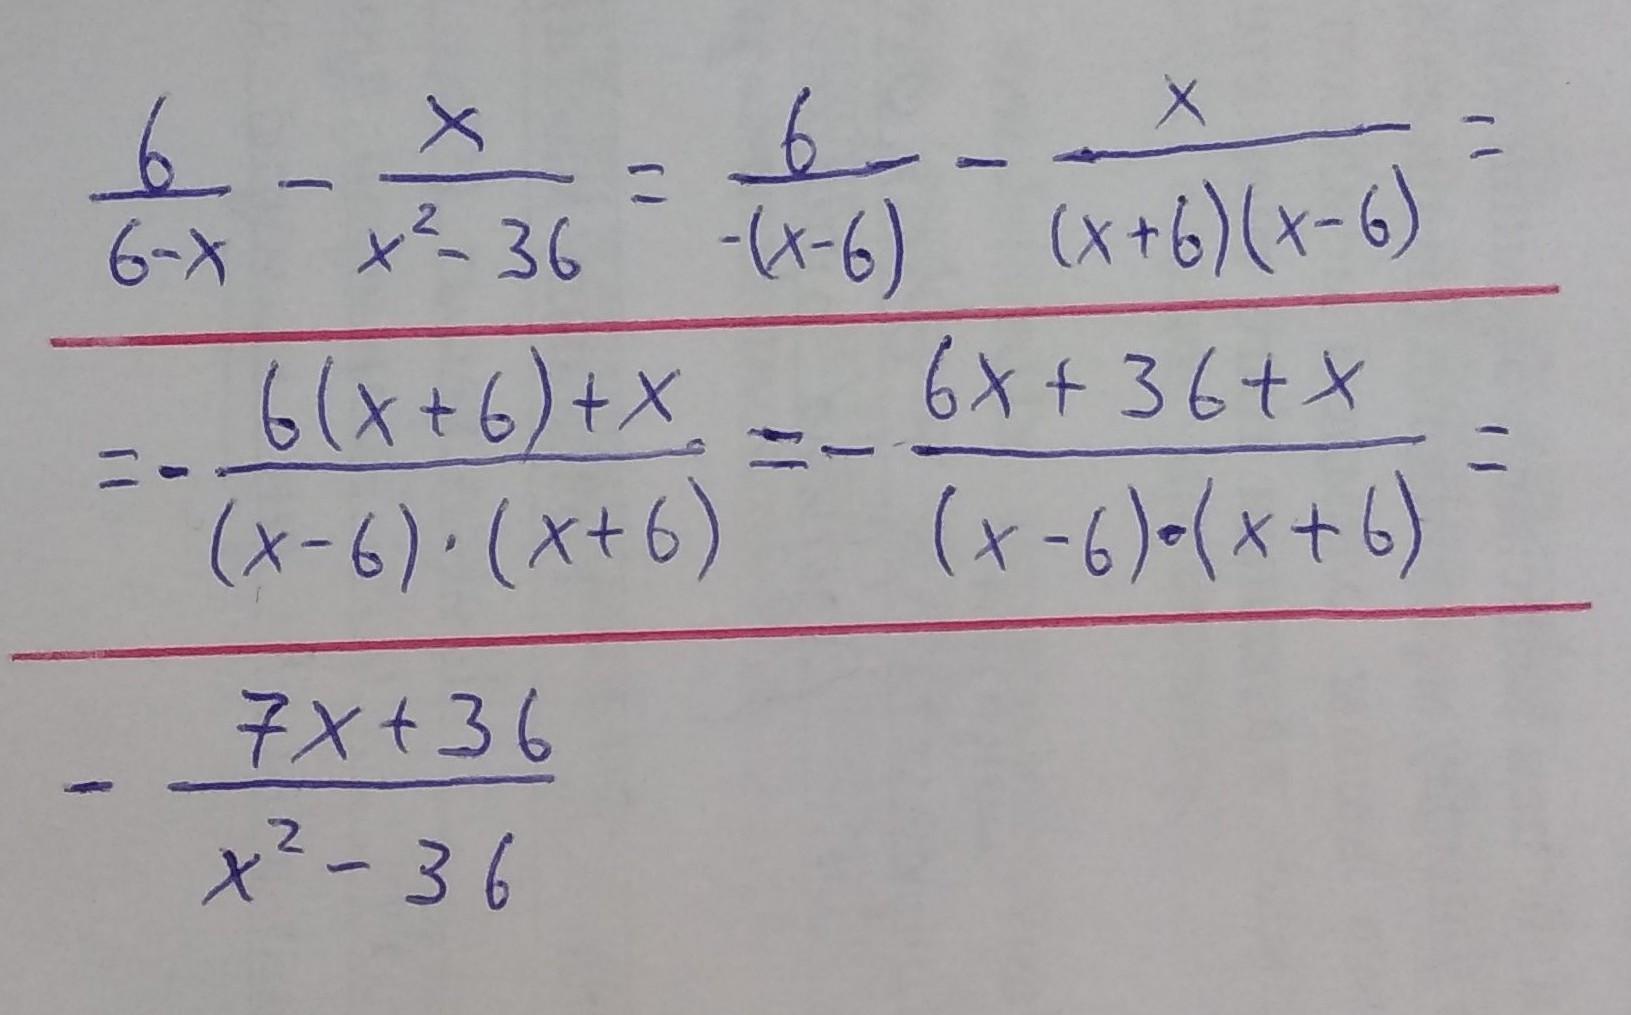 6/(6-x) - x/(x²-36) = 6/(-(x-6)) - x/((x+6)(x-6)) =
= - (6(x+6)+x)/((x-6)·(x+6)) = - (6x+36+x)/((x-6)·(x+6)) =
- (7x+36)/(x²-36)